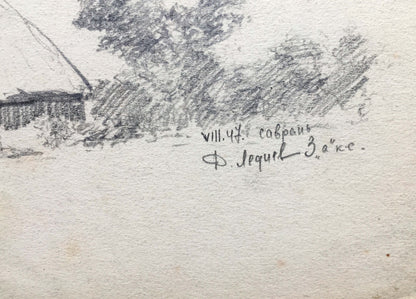 VIII.47. саврань
Ф. Ледиев 3 „а“ к с.